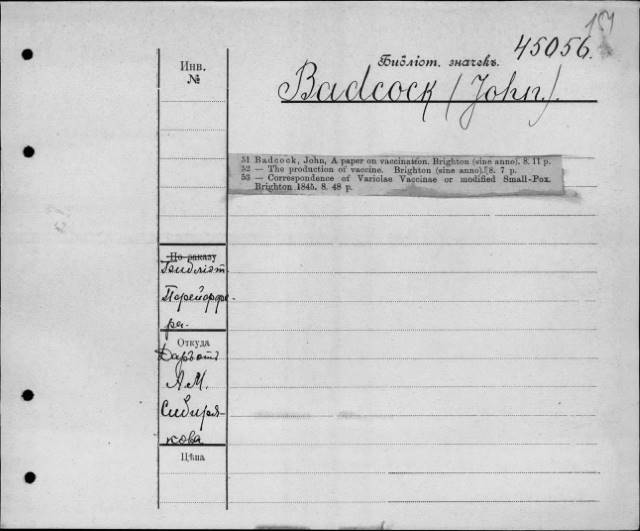 45056.
Инв.
№
Библіот. значекъ.
Badcock (John).
51 Badcock, John, A paper on vaccination. Brighton (sine anno). 8. 11 p.
52 — The production of vaccine. Brighton (sine anno). 8. 7 p.
53 — Correspondence of Variolae Vaccinae or modified Small-Pox.
Brighton 1845. 8. 48 p.
По заказу
Откуда
Даръ отъ
А.М.
Сибиря-
кова
Цѣна